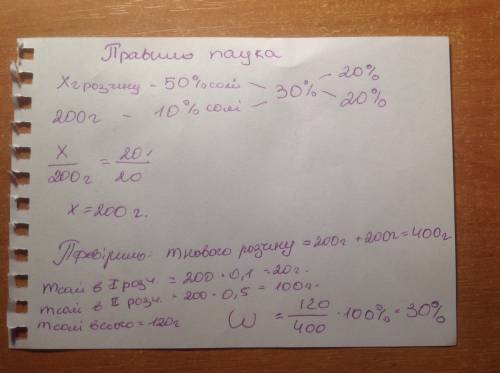 Правило паука
X г розчину - 50% солі 30% 20%
200 г - 10% солі 20%
X/200 г = 20/20
x = 200 г.
Провіримо: m нового розчину = 200г + 200г = 400г
m солі в I розч. = 200 · 0,1 = 20г.
m солі в II розч. = 200 · 0,5 = 100г.
m солі всього = 120г
W = 120/400 · 100% = 30%